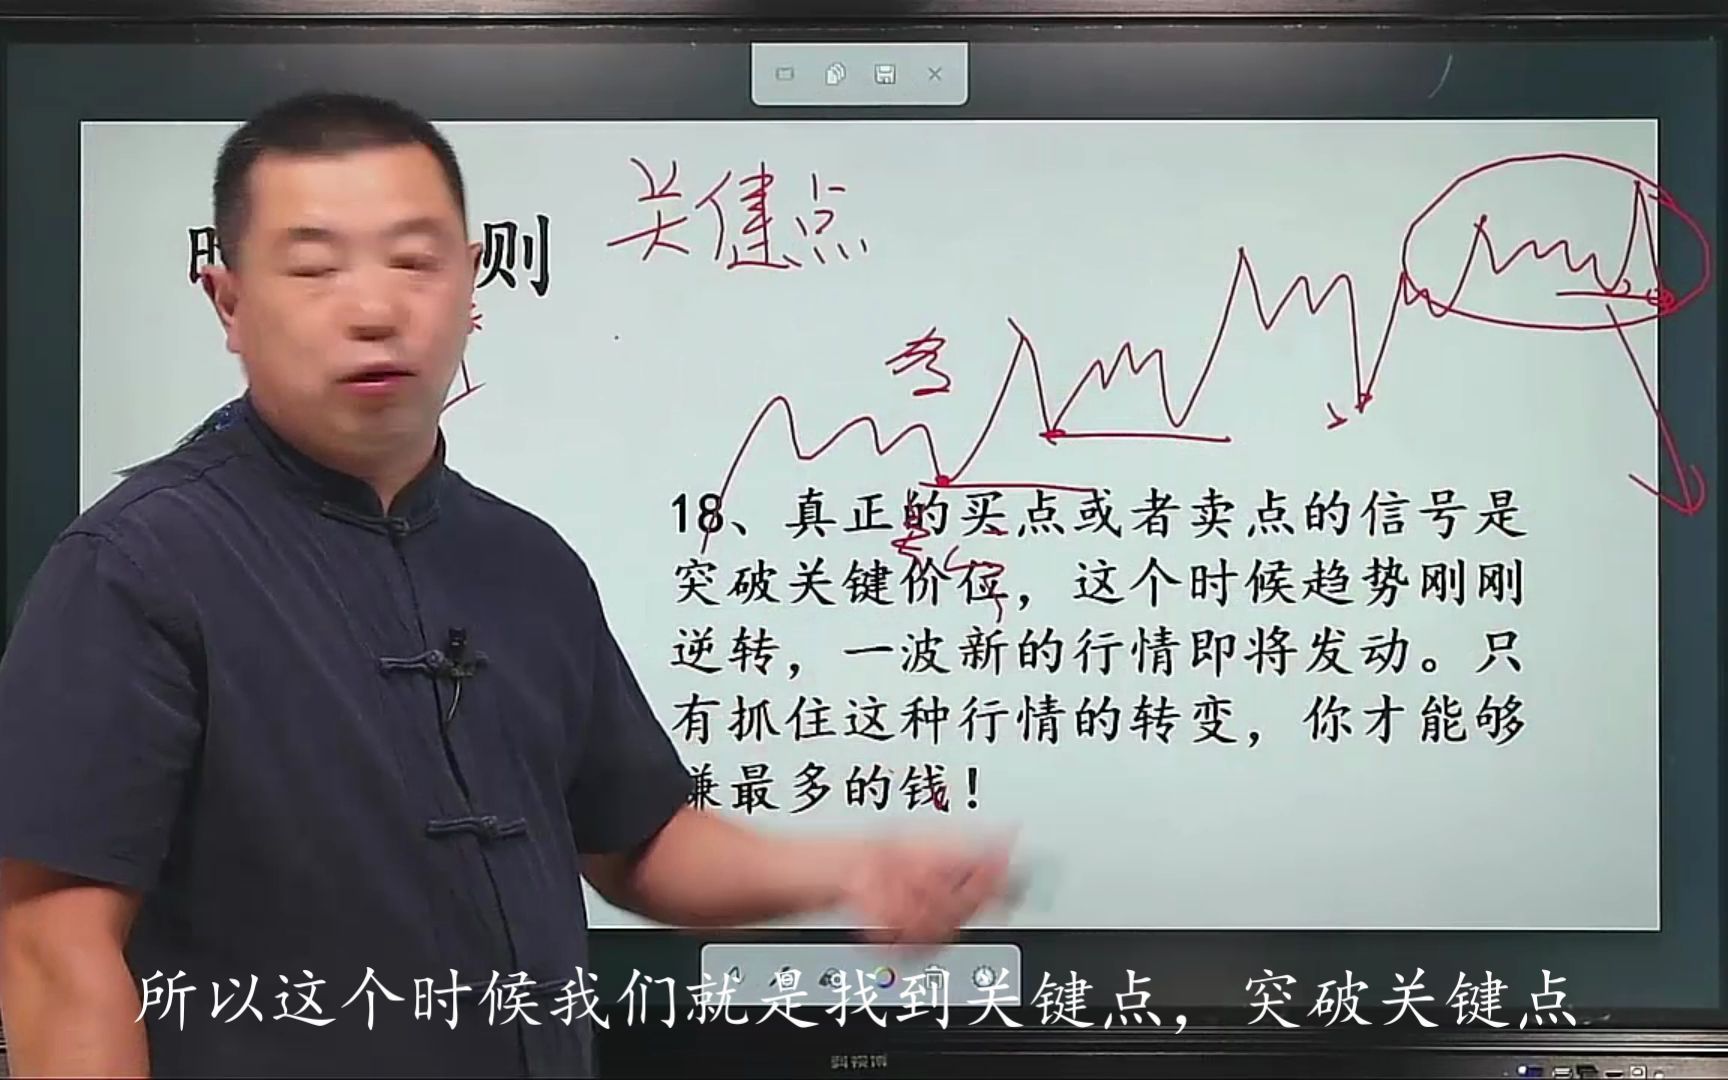 关键点
则
18、真正的买点或者卖点的信号是
突破关键价位，这个时候趋势刚刚
逆转，一波新的行情即将发动。只
有抓住这种行情的转变，你才能够
赚最多的钱！
所以这个时候我们就是找到关键点，突破关键点